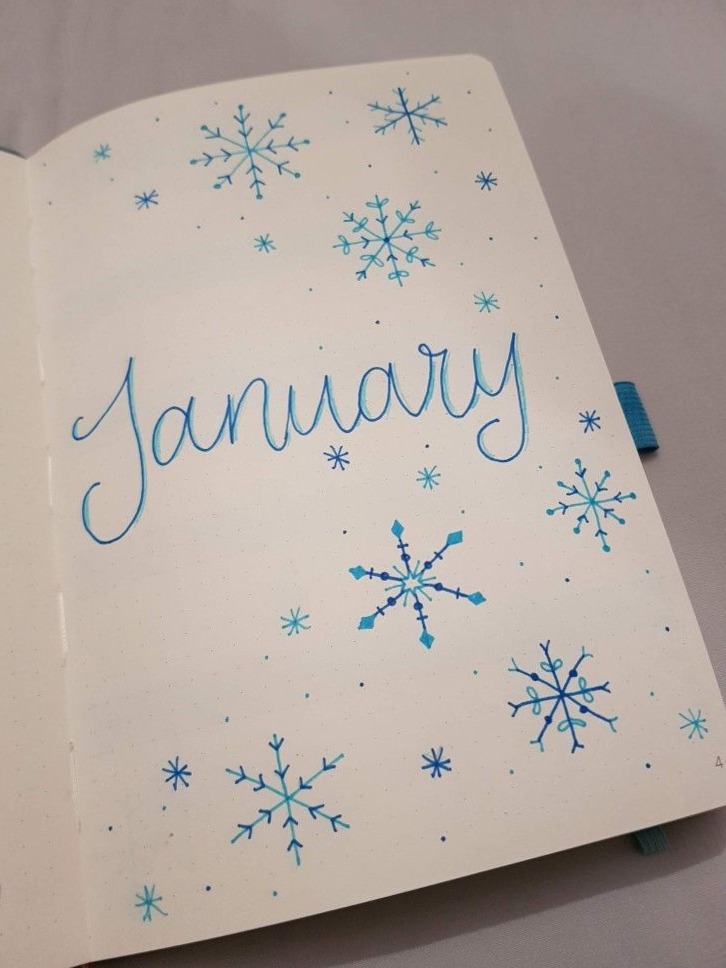 January
4